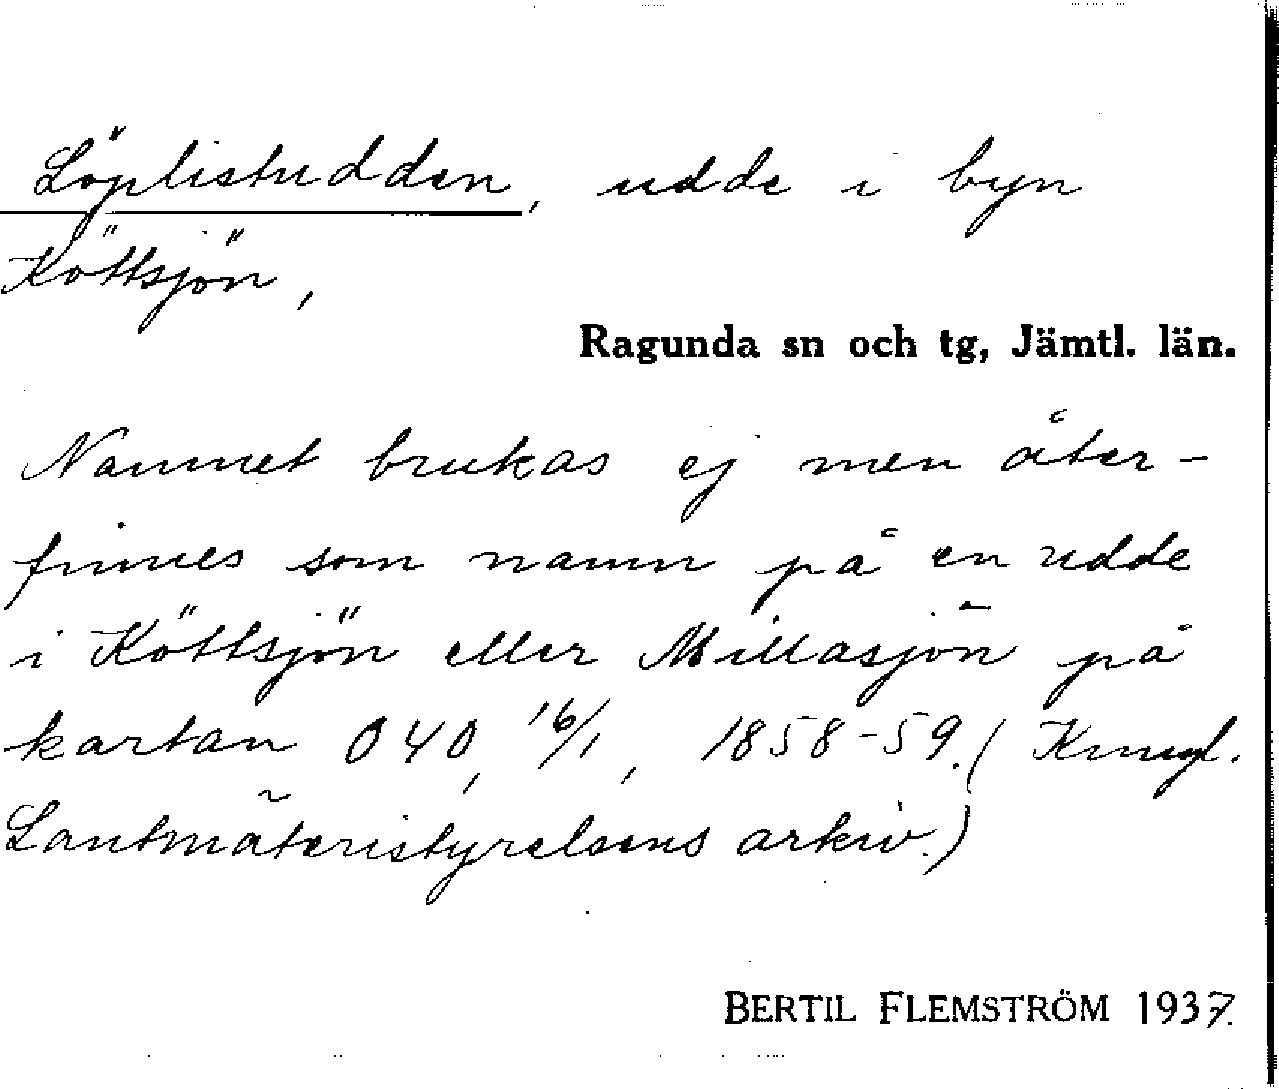 Löplistudden, udde i byn
Köttsjön,
Ragunda sn och tg, Jämtl. län.
Namnet brukas ej men åter-
finnes som namn på en udde
i Köttsjön eller Millasjön på
kartan 040, 16/1, 1858-59. (Kungl.
Lantmäteristyrelsens arkiv.)
BERTIL FLEMSTRÖM 1937.